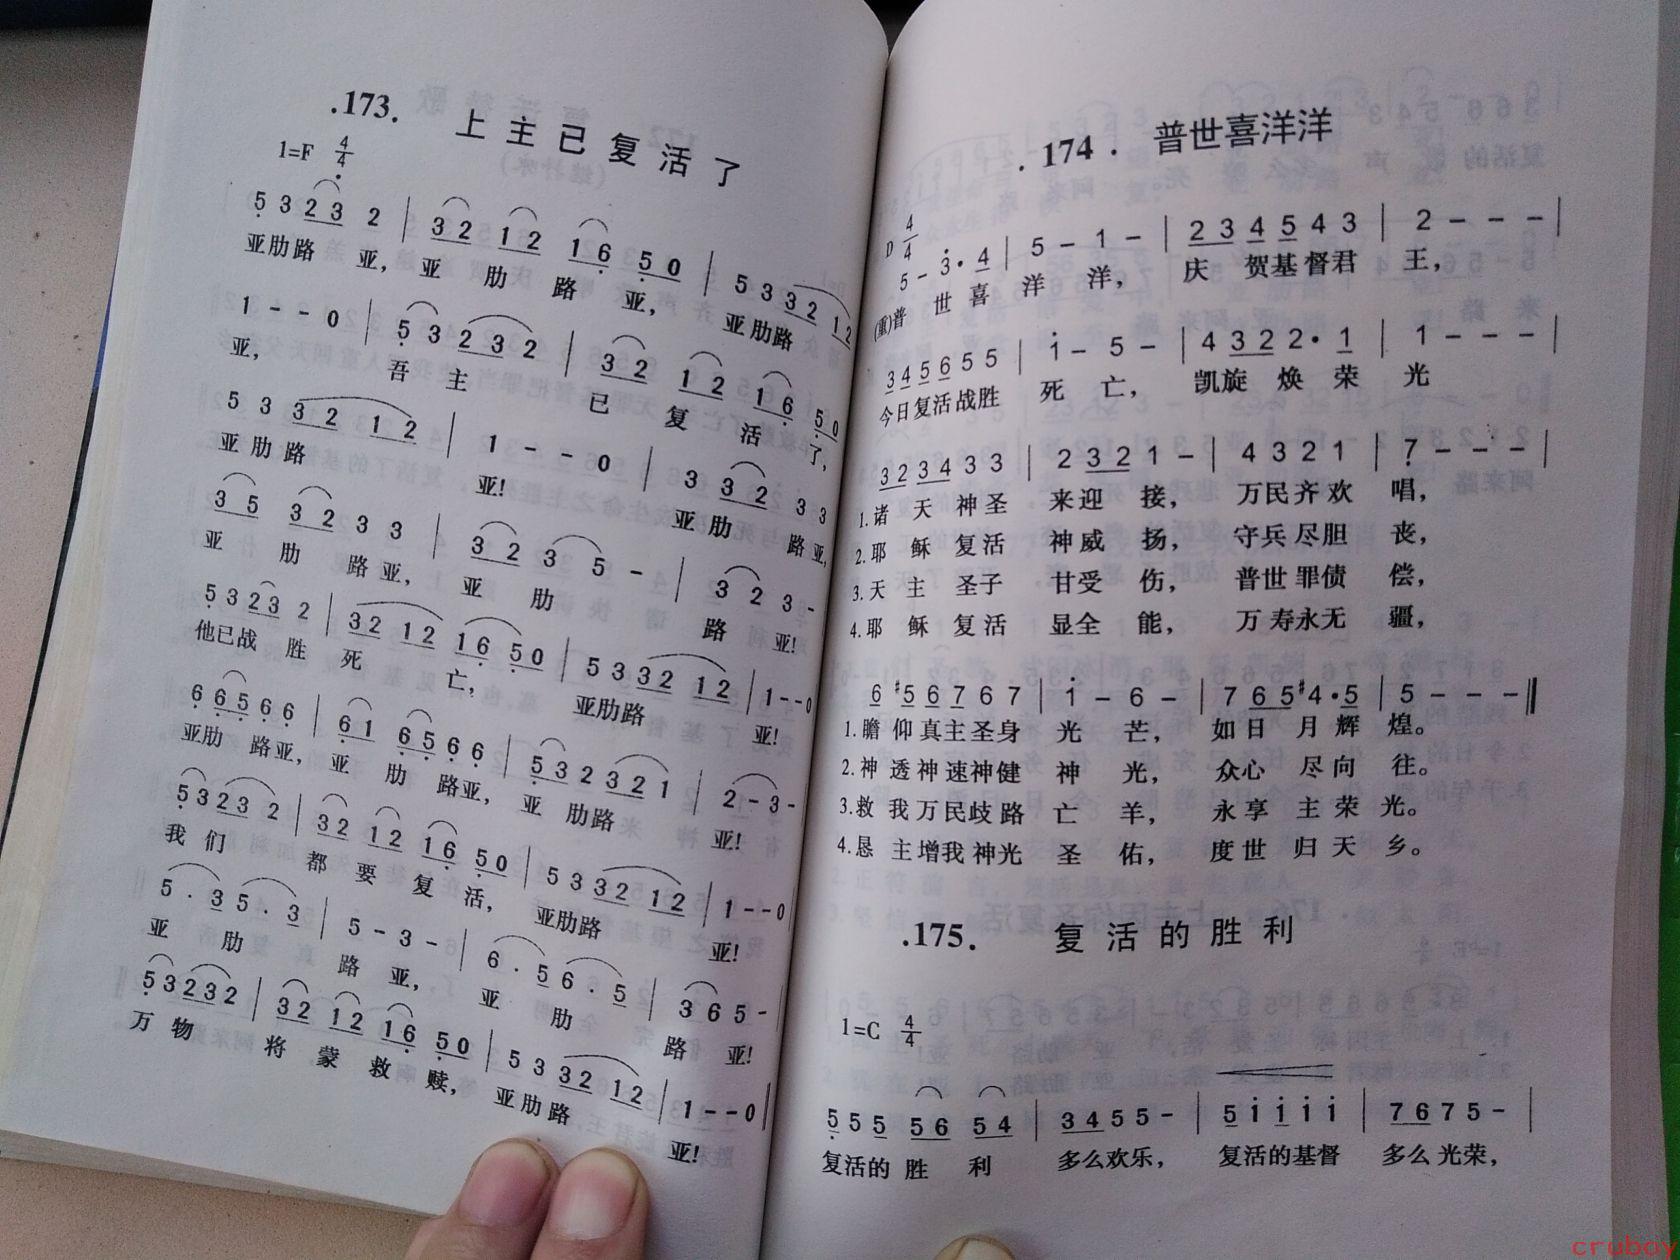 .173.
上主已复活了
1=F 4/4
5 3 2 3 2 | 3 2 1 2 1 6 5 0 | 5 3 3 2 1 2
亚肋路亚，亚肋路亚，亚肋路
1 - - 0 | 5 3 2 3 2 | 3 2 1 2 1 6 5 0
亚，吾主已复活了，
5 3 3 2 1 2 | 1 - - 0 | 3 3 2 3 3
亚肋路亚！亚肋路亚，
3 5 3 2 3 3 | 3 2 3 5 - | 3 2 3 -
亚肋路亚，亚肋路亚！
5 3 2 3 2 | 3 2 1 2 1 6 5 0 | 5 3 3 2 1 2 | 1 - - 0
他已战胜死亡，亚肋路亚！
6 6 5 6 6 | 6 1 6 5 6 6 | 5 3 2 3 2 1 | 2 - 3 -
亚肋路亚，亚肋路亚，亚肋路亚！
5 3 2 3 2 | 3 2 1 2 1 6 5 0 | 5 3 3 2 1 2 | 1 - - 0
我们都要复活，亚肋路亚！
5 · 3 5 · 3 | 5 - 3 - | 6 · 5 6 · 5 | 3 6 5 -
亚肋路亚，亚肋路亚！
5 3 2 3 2 | 3 2 1 2 1 6 5 0 | 5 3 3 2 1 2 | 1 - - 0
万物将蒙救赎，亚肋路亚！
.174.
普世喜洋洋
D 4/4
5 - 3 · 4 | 5 - 1 - | 2 3 4 5 4 3 | 2 - - - |
(重)普世喜洋洋，庆贺基督君王，
3 4 5 6 5 5 | 1 - 5 - | 4 3 2 2 · 1 | 1 - - - |
今日复活战胜死亡，凯旋焕荣光
3 2 3 4 3 3 | 2 3 2 1 - | 4 3 2 1 | 7 - - - |
1.诸天神圣来迎接，万民齐欢唱，
2.耶稣复活神威扬，守兵尽胆丧，
3.天主圣子甘受伤，普世罪债偿，
4.耶稣复活显全能，万寿永无疆，
6 #5 6 7 6 7 | 1 - 6 - | 7 6 5 #4 · 5 | 5 - - - ‖
1.瞻仰真主圣身光芒，如日月辉煌。
2.神透神速神健神光，众心尽向往。
3.救我万民歧路亡羊，永享主荣光。
4.恳主增我神光圣佑，度世归天乡。
.175.
复活的胜利
1=C 4/4
5 5 5 5 6 5 4 | 3 4 5 5 - | 5 1 1 1 1 | 7 6 7 5 - |
复活的胜利多么欢乐，复活的基督多么光荣，
cruboy